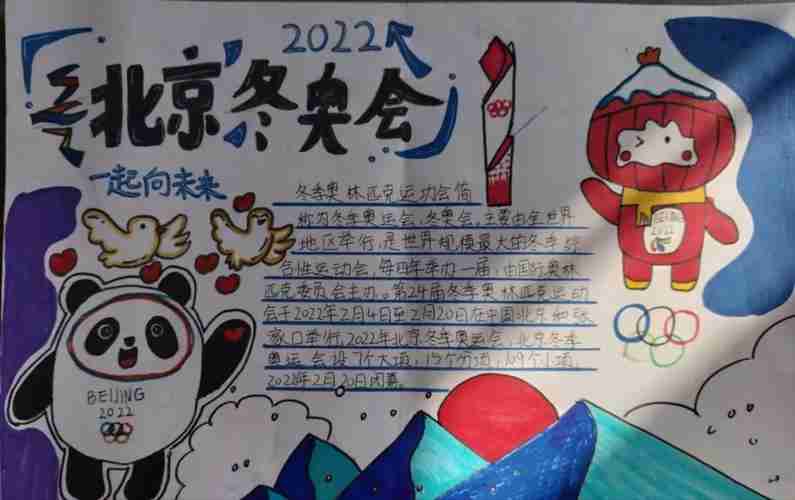 2022
北京冬奥会
一起向未来
冬季奥林匹克运动会简
称为冬季奥运会、冬奥会,主要由全世界
地区举行,是世界规模最大的冬季综
合性运动会,每四年举办一届,由国际奥林
匹克委员会主办。第24届冬季奥林匹克运动
会于2022年2月4日至2月20日在中国北京和张
家口举行,2022年北京冬季奥运会,北京冬季
奥运会设7个大项,15个分项,109个小项,
2022年2月20日闭幕。
BEIJING
2022
BEIJING
2022